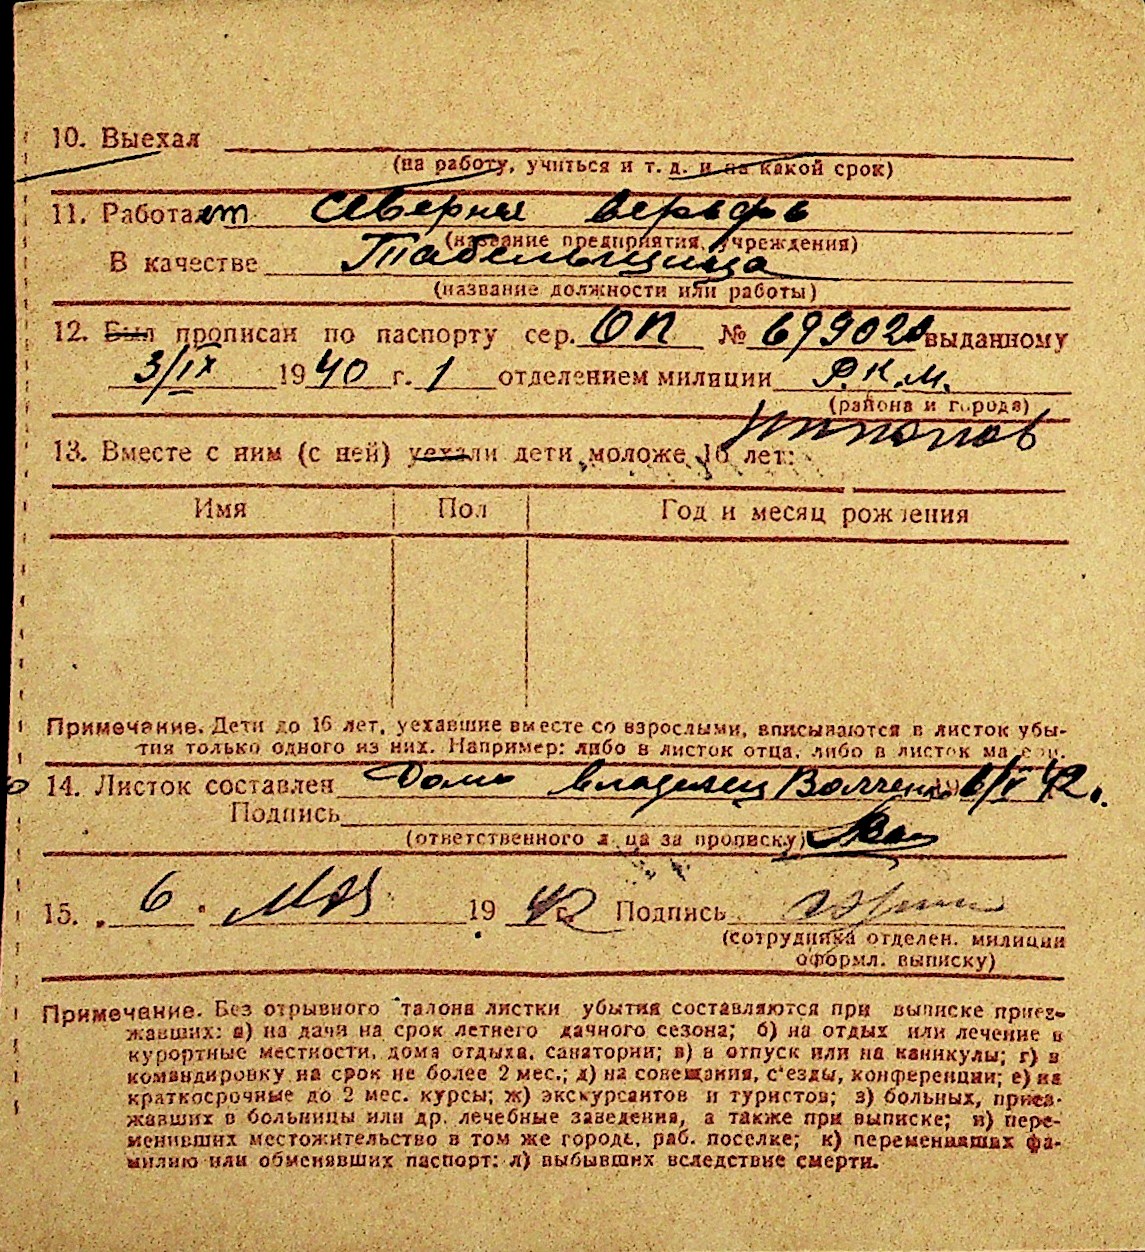 10. Выехал
(на работу, учиться и т. д. и на какой срок)
11. Работает Северня верьфь
(название предприятия, учреждения)
В качестве Табельщица
(название должности или работы)
12. Был прописан по паспорту сер. ОП № 699020 выданному
3/IX 1940 г. 1 отделением милиции Р.К.М.
(района и города)
13. Вместе с ним (с ней) уехали дети моложе 16 лет:
Имя Пол Год и месяц рождения
Примечание. Дети до 16 лет, уехавшие вместе со взрослыми, вписываются в листок убы-
тия только одного из них. Например: либо в листок отца, либо в листок матери.
14. Листок составлен Домо владелец 19 6/V 42.
Подпись
(ответственного лица за прописку)
15. „6" мая 1942 г. Подпись
(сотрудника отделен. милиции
оформл. выписку)
Примечание. Без отрывного талона листки убытия составляются при выписке приез-
жавших: а) на дачи на срок летнего дачного сезона; б) на отдых или лечение в
курортные местности, дома отдыха, санатории; в) в отпуск или на каникулы; г) в
командировку на срок не более 2 мес.; д) на совещания, с'езды, конференции; е) на
краткосрочные до 2 мес. курсы; ж) экскурсантов и туристов; з) больных, приез-
жавших в больницы или др. лечебные заведения, а также при выписке; и) пере-
менивших местожительство в том же городе, раб. поселке; к) переменивших фа-
милию или обменявших паспорт; л) выбывших вследствие смерти.